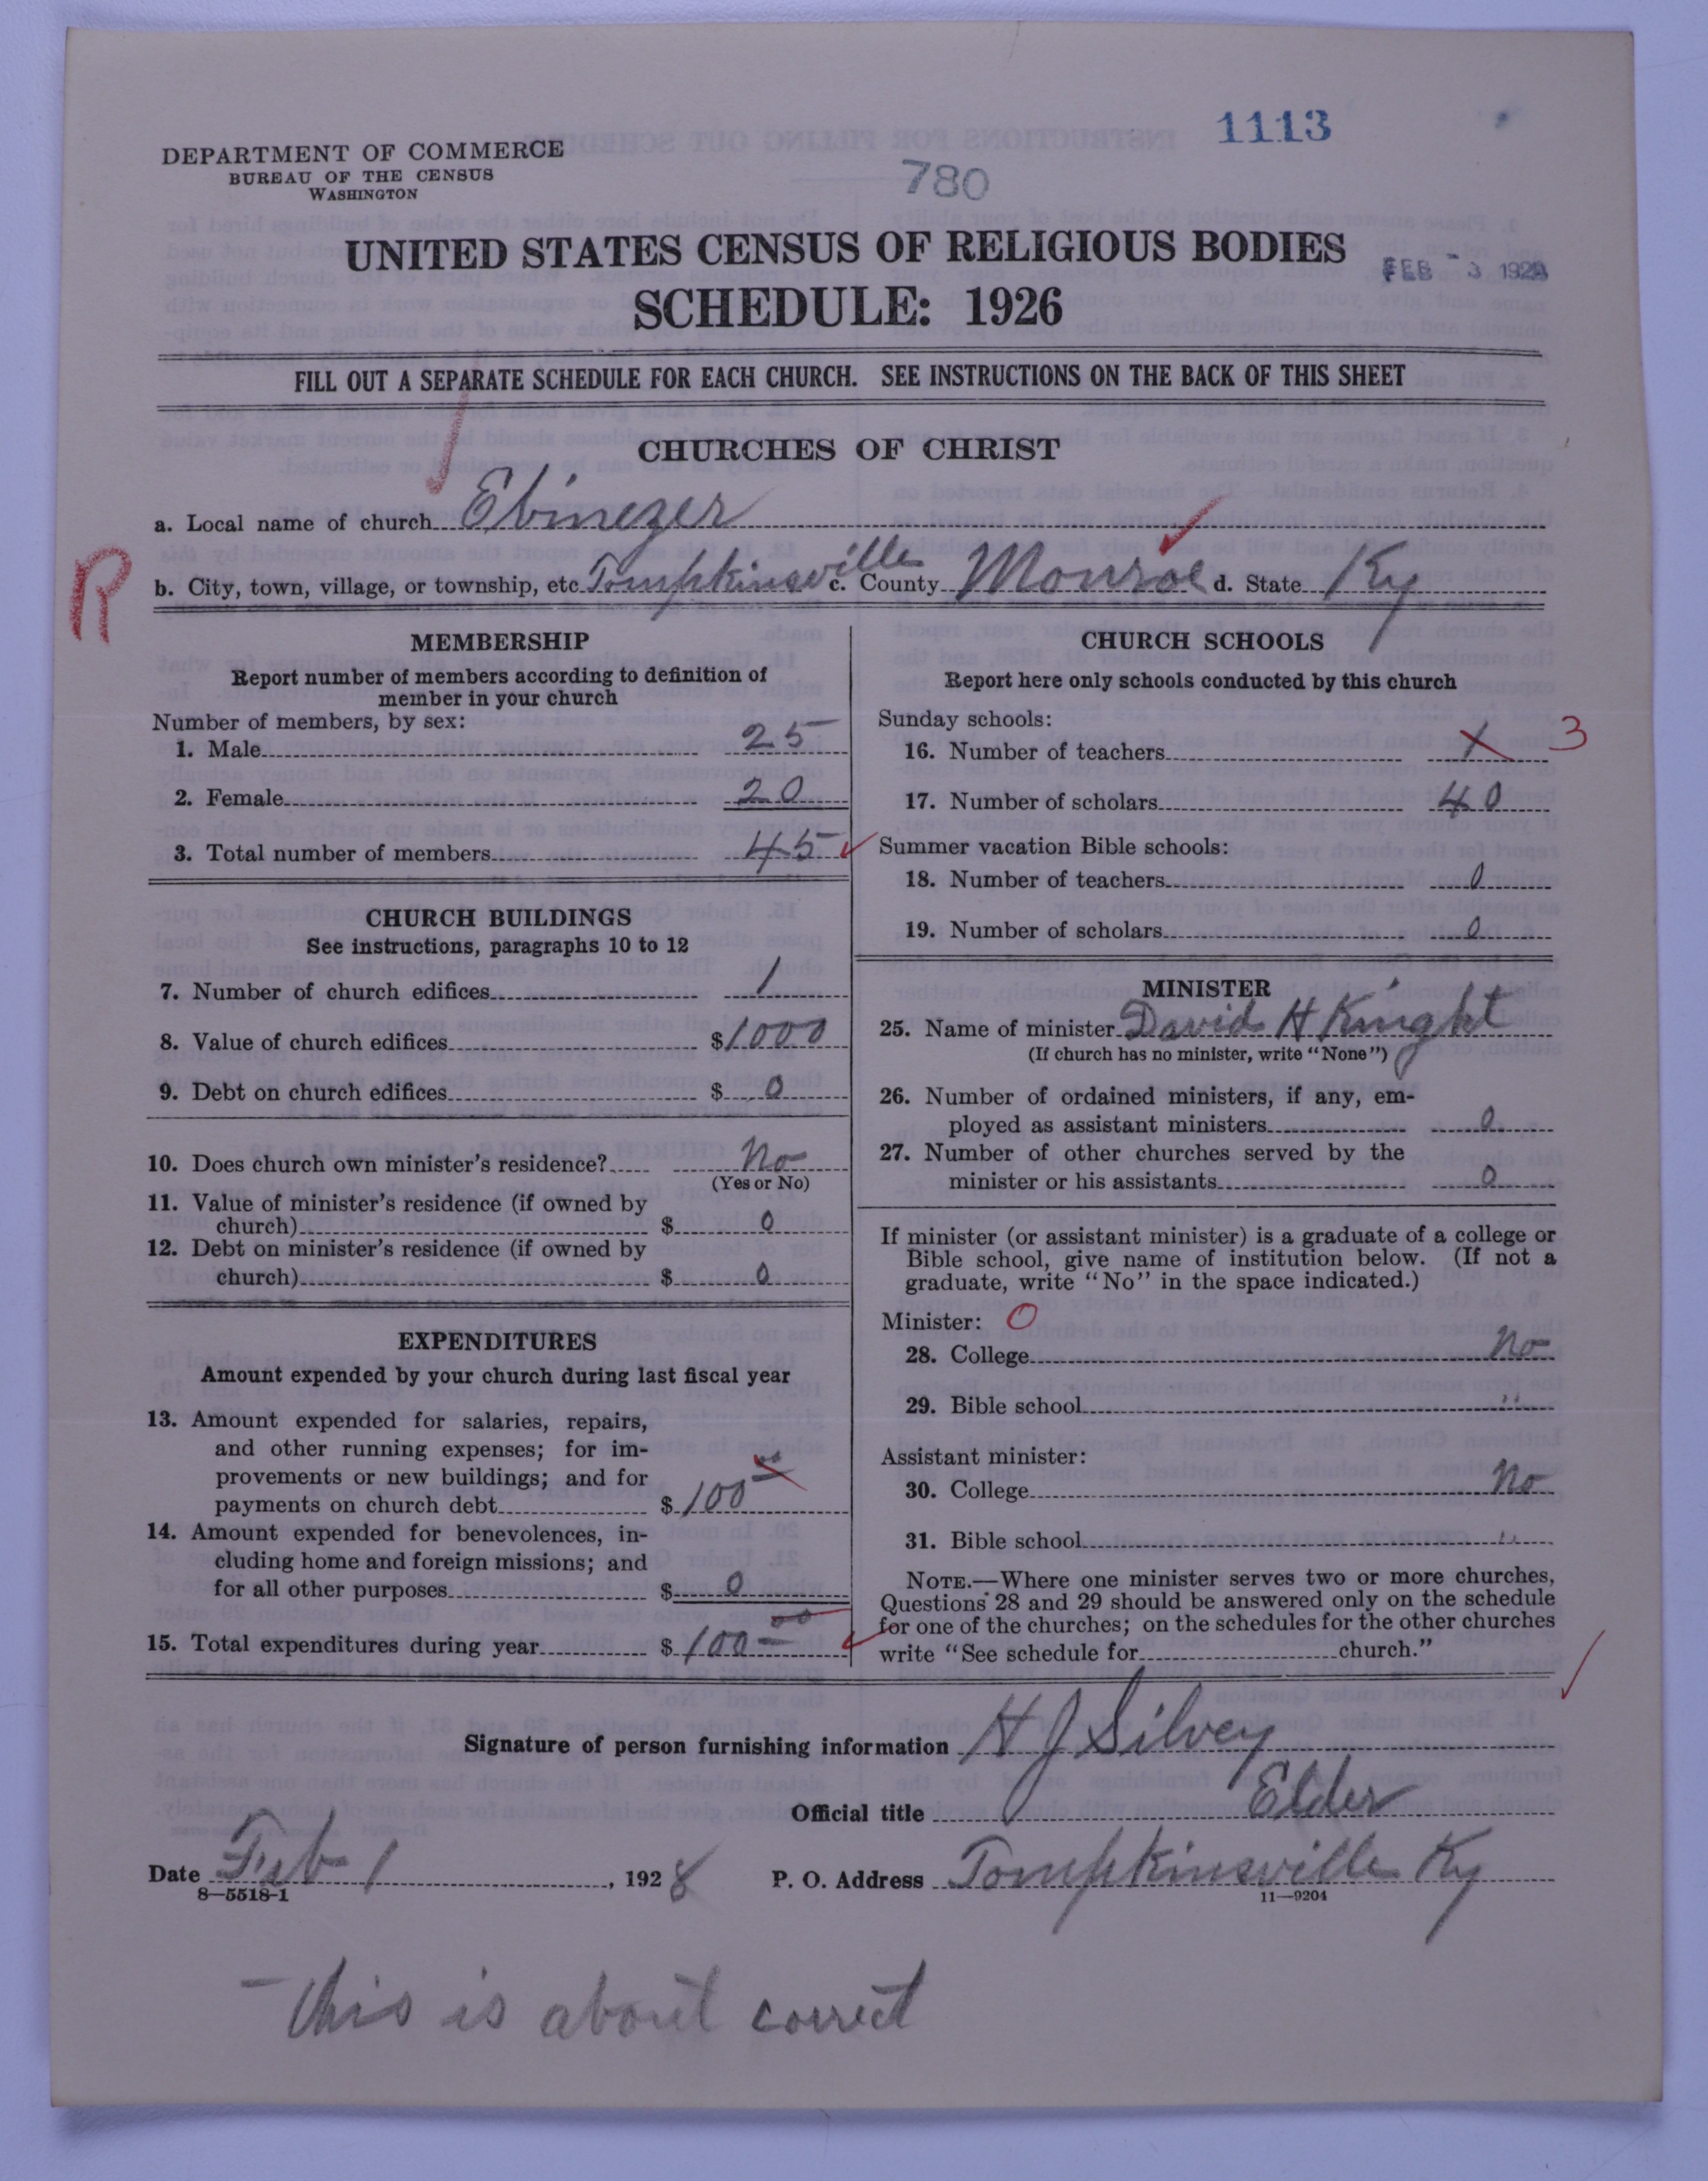 1113
780
DEPARTMENT OF COMMERCE
BUREAU OF THE CENSUS
WASHINGTON
UNITED STATES CENSUS OF RELIGIOUS BODIES
FEB - 3 1928
SCHEDULE: 1926
FILL OUT A SEPARATE SCHEDULE FOR EACH CHURCH. SEE INSTRUCTIONS ON THE BACK OF THIS SHEET
CHURCHES OF CHRIST
a. Local name of church Ebinezer
R
b. City, town, village, or township, etc. Tompkinsville c. County Monroe d. State Ky
MEMBERSHIP
Report number of members according to definition of
member in your church
Number of members, by sex:
1. Male 25
2. Female 20
3. Total number of members 45
CHURCH BUILDINGS
See instructions, paragraphs 10 to 12
7. Number of church edifices 1
8. Value of church edifices $1000
9. Debt on church edifices $ 0
10. Does church own minister's residence? No
(Yes or No)
11. Value of minister's residence (if owned by
church) $ 0
12. Debt on minister's residence (if owned by
church) $ 0
EXPENDITURES
Amount expended by your church during last fiscal year
13. Amount expended for salaries, repairs,
and other running expenses; for im-
provements or new buildings; and for
payments on church debt $ 100 00
14. Amount expended for benevolences, in-
cluding home and foreign missions; and
for all other purposes $ 0
15. Total expenditures during year $ 100 00
CHURCH SCHOOLS
Report here only schools conducted by this church
Sunday schools:
16. Number of teachers 1 3
17. Number of scholars 40
Summer vacation Bible schools:
18. Number of teachers 0
19. Number of scholars 0
MINISTER
25. Name of minister David H Knight
(If church has no minister, write "None")
26. Number of ordained ministers, if any, em-
ployed as assistant ministers 0
27. Number of other churches served by the
minister or his assistants 0
If minister (or assistant minister) is a graduate of a college or
Bible school, give name of institution below. (If not a
graduate, write "No" in the space indicated.)
Minister: 0
28. College No
29. Bible school "
Assistant minister:
30. College No
31. Bible school "
NOTE.—Where one minister serves two or more churches,
Questions 28 and 29 should be answered only on the schedule
for one of the churches; on the schedules for the other churches
write "See schedule for church."
Signature of person furnishing information H J Silvey
Official title Elder
Date Feb 1, 1928 P. O. Address Tompkinsville Ky
8—5518-1 11—9204
- this is about correct